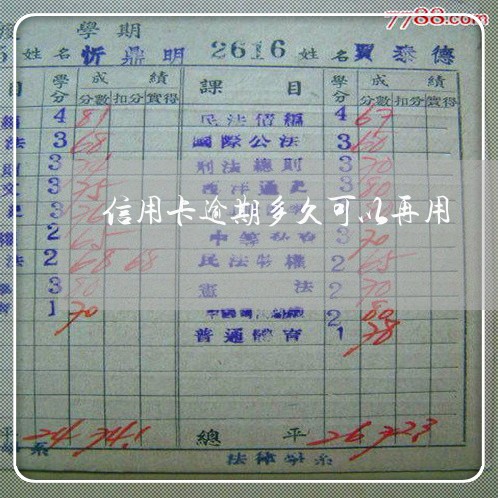 7788.com
學期
姓名 忻鼎明 2616 姓名 賈泰德
目 學分 成績 課目 學分 成績
分數 扣分 實得 分數 扣分 實得
4 81 民法債編 4 67
法 3 68 國際公法 3 60
3 刑法總則 3 70
3 75 西洋通史 3 80
信用卡逾期多久可以再用
2 65 3 70
法 2 68 68 民法物權 2 65
3 80 憲法 2 70
1 70 2 80
普通體育 1 78
平 24 74.1 總平 26 72.3
系 法律學系